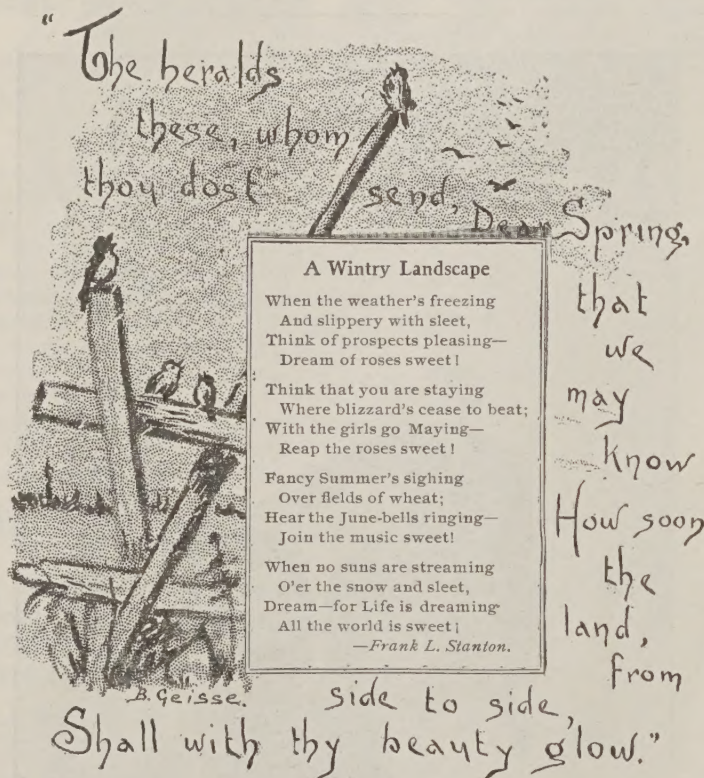 "The heralds
these, whom
thou dost send, Dear Spring,
that
we
may
know
How soon
the
land,
from
side to side,
Shall with thy beauty glow."
A Wintry Landscape
When the weather's freezing
And slippery with sleet,
Think of prospects pleasing—
Dream of roses sweet!
Think that you are staying
Where blizzard's cease to beat;
With the girls go Maying—
Reap the roses sweet!
Fancy Summer's sighing
Over fields of wheat;
Hear the June-bells ringing—
Join the music sweet!
When no suns are streaming
O'er the snow and sleet,
Dream—for Life is dreaming
All the world is sweet¡
—Frank L. Stanton.
B. Geisse.